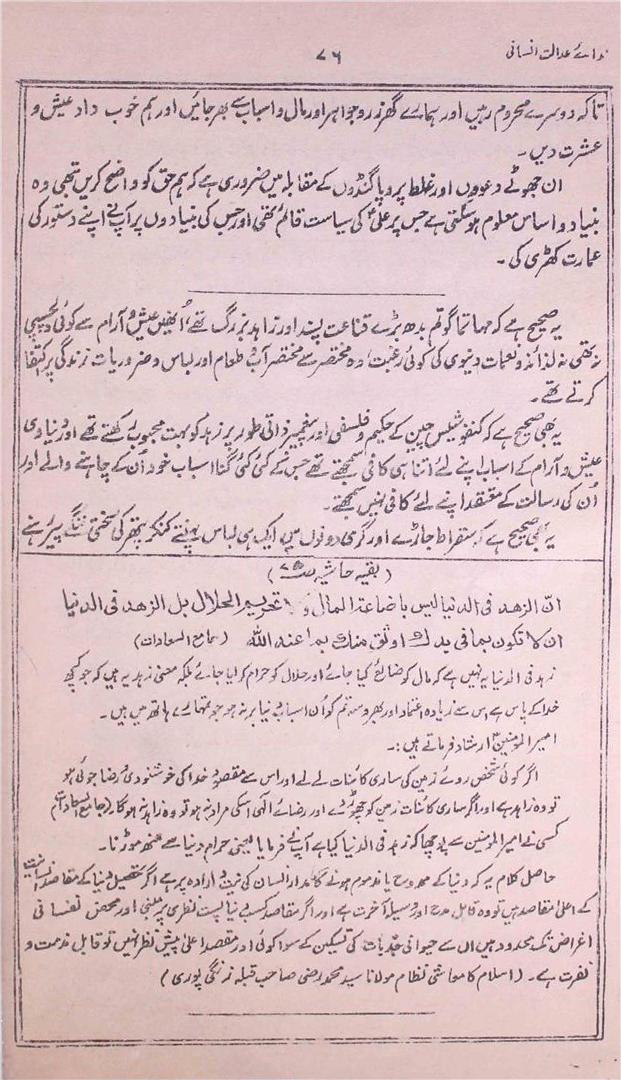 ندائے عدالت انسانی
۷۶
تاکہ دوسرے محروم رہیں اور ہمارے گھر زر و جواہر اور مال و اسباب سے بھر جائیں اور ہم خوب داد عیش و
عشرت دیں۔
ان جھوٹے دعووں اور غلط پروپاگنڈوں کے مقابلہ میں ضروری ہے کہ ہم حق کو واضح کریں تبھی وہ
بنیاد و اساس معلوم ہو سکتی ہے جس پر علیؑ کی سیاست قائم تھی اور جس کی بنیادوں پر آپ نے اپنے دستور کی
عمارت کھڑی کی۔
یہ صحیح ہے کہ مہاتما گوتم بدھ بڑے قناعت پسند اور زاہد بزرگ تھے، انھیں عیش و آرام سے کوئی دلچسپی
نہ تھی نہ لذائذ و نعمات دنیوی کی کوئی رغبت، وہ مختصر سے مختصر آب و طعام اور لباس و ضروریات زندگی پر اکتفا
کرتے تھے۔
یہ بھی صحیح ہے کہ کنفوشیس چین کے حکیم و فلسفی اور پیغمبر ذاتی طور پر زہد کو بہت محبوب رکھتے تھے اور دنیاوی
عیش و آرام کے اسباب اپنے لئے اتنا ہی کافی سمجھتے تھے جس کے کئی کئی گنا اسباب خود اُن کے چاہنے والے اور
اُن کی رسالت کے معتقد اپنے لئے کافی نہیں سمجھتے۔
یہ بھی صحیح ہے کہ سقراط جاڑے اور گرمی دونوں میں ایک ہی لباس پہنتے کنکر پتھر کی سختی ننگے پیر رہنے
(بقیہ حاشیہ ص۷۵)
انّ الزهد فی الدنیا لیس باضاعة المال ولا تحریم الحلال بل الزهد فی الدنیا
ان لا تکون بما فی یدک اوثق منک بما عند الله (جامع السعادات)
زہد فی الدنیا یہ نہیں ہے کہ مال کو ضائع کیا جائے اور حلال کو حرام کر لیا جائے بلکہ معنی زہد یہ ہیں کہ جو کچھ
خدا کے پاس ہے اس سے زیادہ اعتماد اور بھروسہ تم کو اُن اسباب دنیا پر نہ ہو جو تمہارے ہاتھ میں ہیں۔
امیر المومنینؑ ارشاد فرماتے ہیں:۔
اگر کوئی شخص روئے زمین کی ساری کائنات لے لے اور اس سے مقصود خدا کی خوشنودی و رضا جوئی ہو
تو وہ زاہد ہے اور اگر ساری کائنات زمین کو چھوڑ دے اور رضائے الٰہی اسکی مراد نہ ہو تو وہ زاہد نہ ہوگا (جامع السعادات)
کسی نے امیر المومنین سے پوچھا کہ زہد فی الدنیا کیا ہے آپ نے فرمایا یعنی حرام دنیا سے منھ موڑنا۔
حاصل کلام یہ کہ دنیا کے ممدوح یا مذموم ہونے کا مدار انسان کی نیت و ارادہ پر ہے اگر تحصیل دنیا کے مقاصد انسانیت
کے اعلیٰ مقاصد ہیں تو وہ قابل مدح اور وسیلہ آخرت ہے اور اگر مقاصد کسب دنیا پست نظری پر مبنی اور محض نفسانی
اغراض تک محدود ہیں اس سے حیوانی جذبات کی تسکین کے سوا کوئی اور مقصد اعلیٰ پیش نظر نہیں تو قابل مذمت و
نفرت ہے۔ (اسلام کا معاشی نظام مولانا سید محمد رضی صاحب قبلہ زنگی پوری)